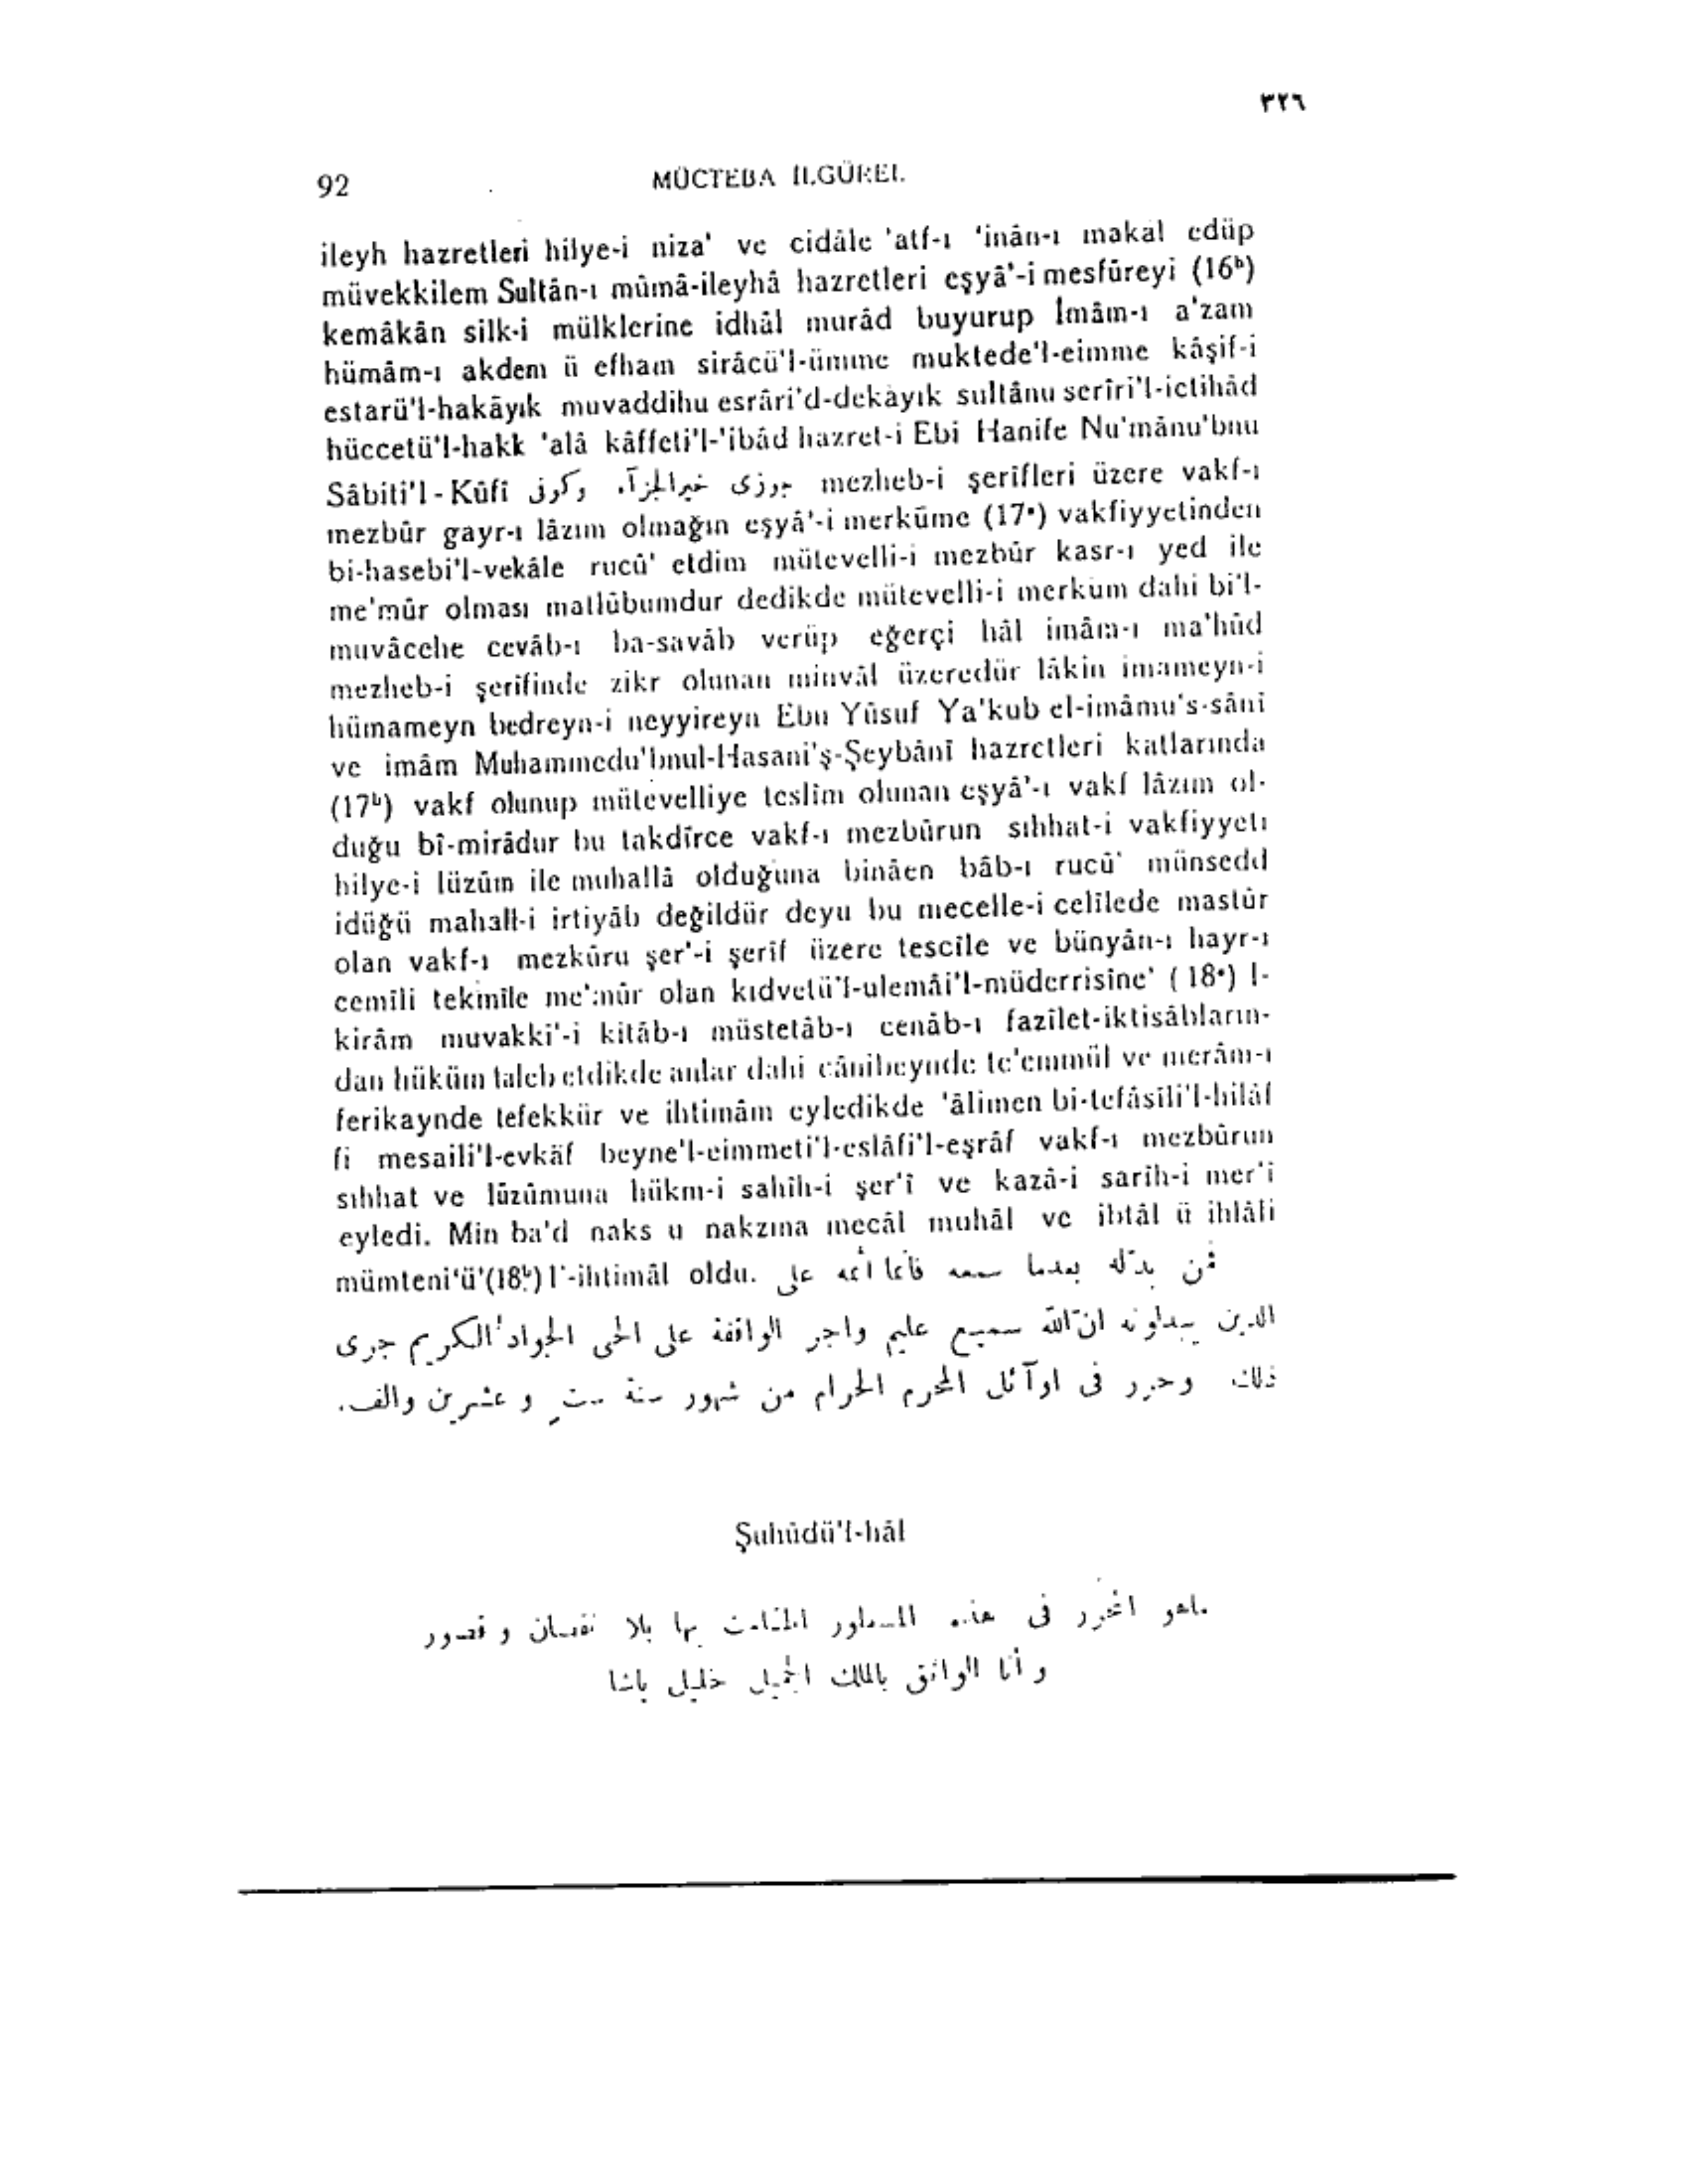 ٣٢٦
92 MÜCTEBA İLGÜREL
ileyh hazretleri hilye-i niza' ve cidâle 'atf-ı 'inân-ı makal edüp
müvekkilem Sultân-ı mûmâ-ileyhâ hazretleri eşyâ'-i mesfûreyi (16ᵇ)
kemâkân silk-i mülklerine idhâl murâd buyurup İmâm-ı a'zam
hümâm-ı akdem ü efham sirâcü'l-ümme muktede'l-eimme kâşif-i
estarü'l-hakāyık muvaddihu esrâri'd-dekàyık sultânu serîri'l-ictihâd
hüccetü'l-hakk 'alâ kâffeti'l-'ibâd hazret-i Ebi Hanife Nu'mânu'bnu
Sâbiti'l - Kûfî جوزى خيرالجزآء وكوفى mezheb-i şerîfleri üzere vakf-ı
mezbûr gayr-ı lâzım olmağın eşyâ'-i merkûme (17ᵃ) vakfiyyetinden
bi-hasebi'l-vekâle rucû' etdim mütevelli-i mezbûr kasr-ı yed ile
me'mûr olması matlûbumdur dedikde mütevelli-i merkum dahi bi'l-
muvâcehe cevâb-ı ba-savâb verüp eğerçi hâl imâm-ı ma'hûd
mezheb-i şerifinde zikr olunan minvâl üzeredür lâkin imameyn-i
hümameyn bedreyn-i neyyireyn Ebu Yûsuf Ya'kub el-imâmu's-sânî
ve imâm Muhammedu'bnul-Hasani'ş-Şeybânî hazretleri katlarında
(17ᵇ) vakf olunup mütevelliye teslîm olunan eşyâ'-ı vakf lâzım ol-
duğu bî-mirâdur bu takdîrce vakf-ı mezbûrun sıhhat-i vakfiyyeti
hilye-i lüzûm ile muhallâ olduğuna binâen bâb-ı rucû' münsedd
idüğü mahall-i irtiyâb değildür deyu bu mecelle-i celîlede mastûr
olan vakf-ı mezkûru şer'-i şerîf üzere tescile ve bünyân-ı hayr-ı
cemîli tekmîle me'mûr olan kıdvetü'l-ulemâi'l-müderrisîne' (18ᵃ) l-
kirâm muvakki'-i kitâb-ı müstetâb-ı cenâb-ı fazîlet-iktisâbların-
dan hüküm taleb etdikde anlar dahi cânibeynde te'emmül ve merâm-ı
ferikaynde tefekkür ve ihtimâm eyledikde 'âlimen bi-tefâsîli'l-hilâf
fi mesaili'l-evkâf beyne'l-eimmeti'l-eslâfi'l-eşrâf vakf-ı mezbûrun
sıhhat ve lüzûmuna hükm-i sahîh-i şer'î ve kazâ-i sarîh-i mer'i
eyledi. Min ba'd naks u nakzına mecâl muhâl ve ibtâl ü ihlâli
mümteni'ü'(18ᵇ) l'-ihtimâl oldu. فمن بدّله بعدما سمعه فانما اثمه على
الذين يبدلونه انّ الله سميع عليم واجر الواقفة على الحى الجواد الكريم جرى
ذلك وحرر فى اوآئل المحرم الحرام من شهور سنة ستٍ و عشرين والف.
Şuhûdü'l-hâl
ماهو المحرّر فى هذه السطور بها بلا نقصان و قصور
و أنا الواثق بالملك الجميل خليل پاشا